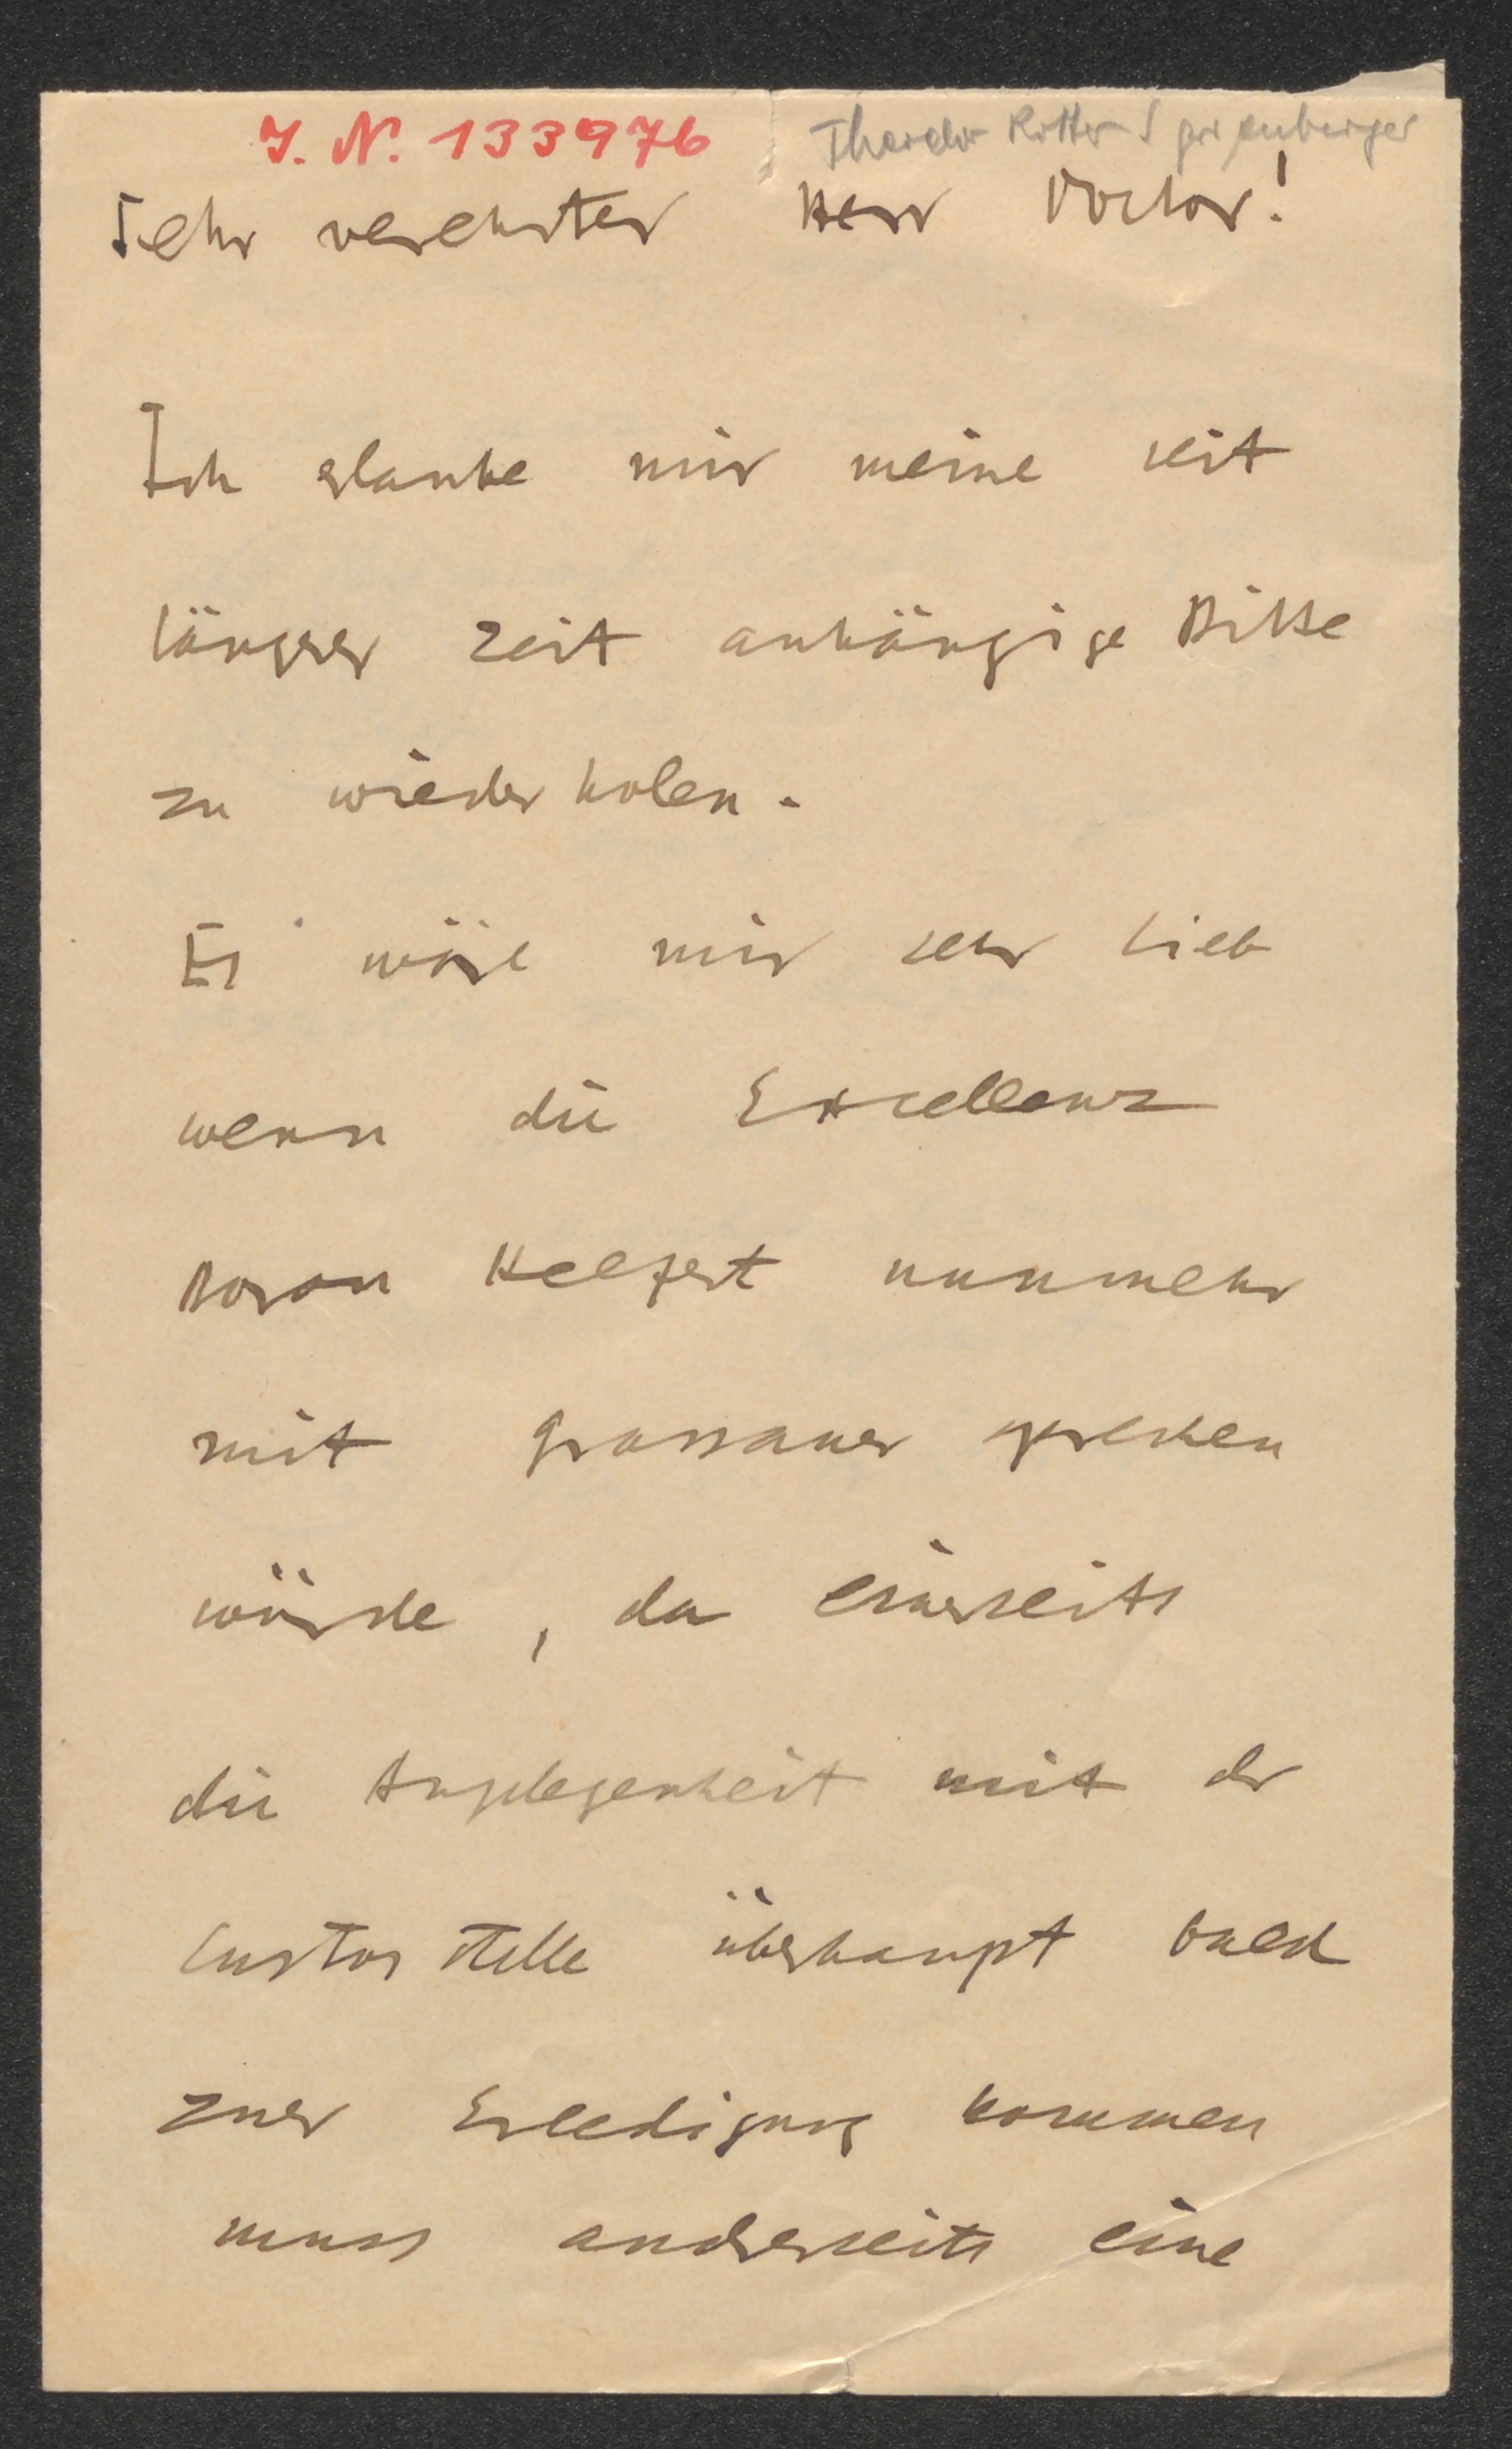 I. N. 133976
Theodor Ritter
Sehr verehrter Herr Doctor!
Ich erlaube mir meine seit
längerer Zeit anhängige Bitte
zu wiederholen.
Es wäre mir sehr lieb
wenn die Excellenz
Baron Helfert nunmehr
mit Grassauer sprechen
würde, da einerseits
die Angelegenheit mit der
Custosstelle überhaupt bald
zuer Erledigung kommen
muss anderseits eine